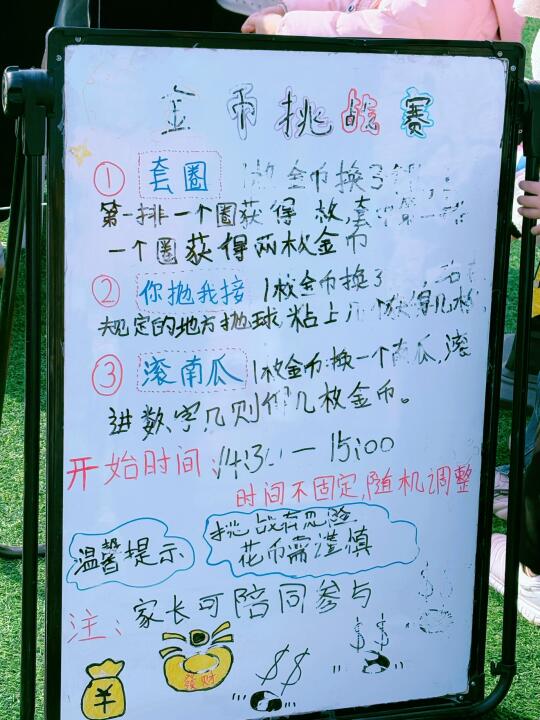 金币挑战赛
① 套圈 1枚金币换3
第一排一个圈获得 枚,套 第
一个圈获得两枚金币
② 你抛我接 1枚金币换3
规定的地方抛球粘上几个获得几枚
③ 滚南瓜 1枚金币换一个南瓜,滚
进数字几则得几枚金币。
开始时间:14:30—15:00
时间不固定,随机调整
温馨提示
挑战有
花币需谨慎
注:家长可陪同参与
¥
發财
$$
$$